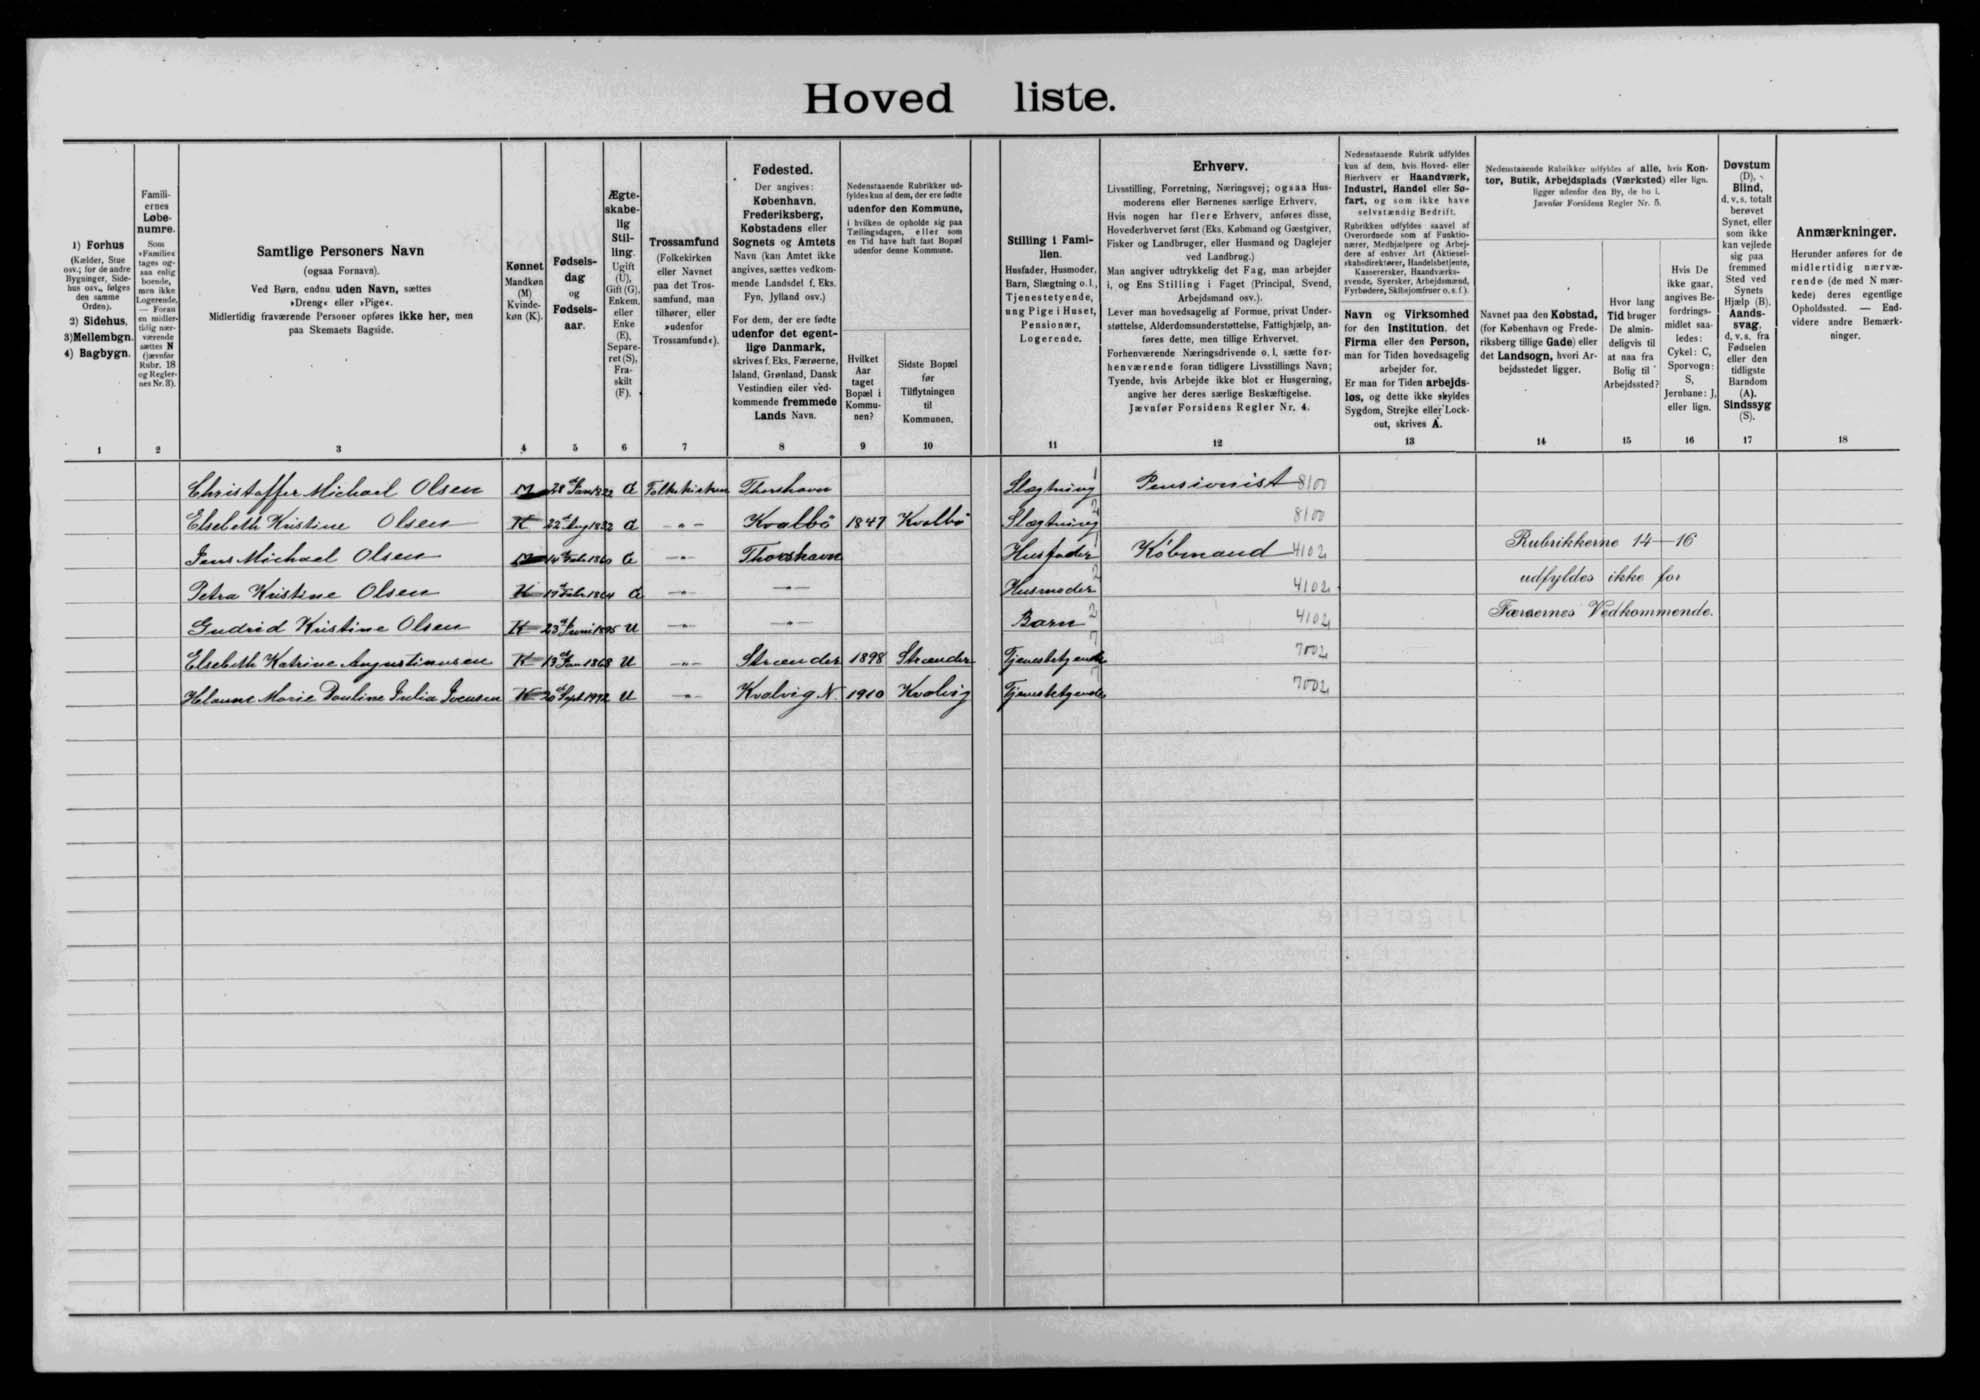 Hoved liste.
1) Forhus
(Kælder, Stue
osv.; for de andre
Bygninger, Side-
hus osv., følges
den samme
Orden).
2) Sidehus,
3) Mellembgn.
4) Bagbygn.
Famili-
ernes
Løbe-
numre.
Som
»Familie«
tages og-
saa enlig
boende,
men ikke
Logerende,
— Foran
en midler-
tidig nær-
værende
sættes N
(jævnfør
Rubr. 18
og Regler-
nes Nr. 3).
Samtlige Personers Navn
(ogsaa Fornavn).
Ved Børn, endnu uden Navn, sættes
»Dreng« eller »Pige«.
Midlertidig fraværende Personer opføres ikke her, men
paa Skemaets Bagside.
Kønnet
Mandkøn
(M)
Kvinde-
køn (K).
Fødsels-
dag
og
Fødsels-
aar.
Ægte-
skabe-
lig
Stil-
ling.
Ugift
(U),
Gift (G),
Enkem.
eller
Enke
(E),
Separe-
ret (S),
Fra-
skilt
(F).
Trossamfund
(Folkekirken
eller Navnet
paa det Tros-
samfund, man
tilhører, eller
»udenfor
Trossamfund«).
Fødested.
Der angives:
København,
Frederiksberg,
Købstadens eller
Sognets og Amtets
Navn (kan Amtet ikke
angives, sættes vedkom-
mende Landsdel f. Eks.
Fyn, Jylland osv.)
For dem, der ere fødte
udenfor det egent-
lige Danmark,
skrives f. Eks. Færøerne,
Island, Grønland, Dansk
Vestindien eller ved-
kommende fremmede
Lands Navn.
Nedenstaaende Rubrikker ud-
fyldes kun af dem, der ere fødte
udenfor den Kommune,
i hvilken de opholde sig paa
Tællingsdagen, eller som
en Tid have haft fast Bopæl
udenfor denne Kommune.
Hvilket
Aar
taget
Bopæl i
Kommu-
nen?
Sidste Bopæl
før
Tilflytningen
til
Kommunen.
Stilling i Fami-
lien.
Husfader, Husmoder,
Barn, Slægtning o.l.,
Tjenestetyende,
ung Pige i Huset,
Pensionær,
Logerende.
Erhverv.
Livsstilling, Forretning, Næringsvej; ogsaa Hus-
moderens eller Børnenes særlige Erhverv.
Hvis nogen har flere Erhverv, anføres disse,
Hovederhvervet først (Eks. Købmand og Gæstgiver,
Fisker og Landbruger, eller Husmand og Daglejer
ved Landbrug.)
Man angiver udtrykkelig det Fag, man arbejder
i, og Ens Stilling i Faget (Principal, Svend,
Arbejdsmand osv.).
Lever man hovedsagelig af Formue, privat Under-
støttelse, Alderdomsunderstøttelse, Fattighjælp, an-
føres dette, men tillige Erhvervet.
Forhenværende Næringsdrivende o. l. sætte for-
henværende foran tidligere Livsstillings Navn;
Tyende, hvis Arbejde ikke blot er Husgerning,
angive her deres særlige Beskæftigelse.
Jævnfør Forsidens Regler Nr. 4.
Nedenstaaende Rubrik udfyldes
kun af dem, hvis Hoved- eller
Bierhverv er Haandværk,
Industri, Handel eller Sø-
fart, og som ikke have
selvstændig Bedrift.
Rubrikken udfyldes saavel af
Overordnede som af Funktio-
nærer, Medhjælpere og Arbej-
dere af enhver Art (Aktiesel-
skabsdirektører, Handelsbetjente,
Kasserersker, Haandværks-
svende, Syersker, Arbejdsmænd,
Fyrbødere, Skibsjomfruer o. s. f.).
Navn og Virksomhed
for den Institution, det
Firma eller den Person,
man for Tiden hovedsagelig
arbejder for.
Er man for Tiden arbejds-
løs, og dette ikke skyldes
Sygdom, Strejke eller Lock-
out, skrives A.
Nedenstaaende Rubrikker udfyldes af alle, hvis Kon-
tor, Butik, Arbejdsplads (Værksted) eller lign.
ligger udenfor den By, de bo i.
Jævnfør Forsidens Regler Nr. 5.
Navnet paa den Købstad,
(for København og Frede-
riksberg tillige Gade) eller
det Landsogn, hvori Ar-
bejdsstedet ligger.
Hvor lang
Tid bruger
De almin-
deligvis til
at naa fra
Bolig til
Arbejdssted?
Hvis De
ikke gaar,
angives Be-
fordrings-
midlet saa-
ledes:
Cykel: C,
Sporvogn:
S,
Jernbane: J,
eller lign.
Døvstum
(D),
Blind,
d. v. s. totalt
berøvet
Synet, eller
som ikke
kan vejlede
sig paa
fremmed
Sted ved
Synets
Hjælp (B).
Aands-
svag,
d. v. s. fra
Fødselen
eller den
tidligste
Barndom
(A).
Sindssyg
(S).
Anmærkninger.
Herunder anføres for de
midlertidig nærvæ-
rende (de med N mær-
kede) deres egentlige
Opholdssted. — End-
videre andre Bemærk-
ninger.
1 2 3 4 5 6 7 8 9 10 11 12 13 14 15 16 17 18
Christoffer Michael Olsen M 28 Jan G Folkekirken Thorshavn Slægtning 1 Pensionist 8100
Elsebeth Kristine Olsen K 22 Aug 1832 G -"- Kvalbø 1847 Kvalbø Slægtning 2 8100
Jens Michael Olsen M 14 Febr 1860 G -"- Thorshavn Husfader 1 Købmand 4102
Petra Kristine Olsen K 19 Febr 1864 G -"- -"- Husmoder 2 4102
Gudrid Kristine Olsen K 23 Juni 1895 U -"- -"- Barn 2 4102
Elsebeth Katrine Augustinusen K 13 Jan 1868 U -"- Strænder 1898 Strænder Tjenestetyende 7 7002
Helanne Marie Pouline Julia Joensen K 20 Sept U -"- Kvalvig N. 1910 Kvalvig Tjenestetyende 7002
Rubrikkerne 14-16
udfyldes ikke for
Færøernes Vedkommende.